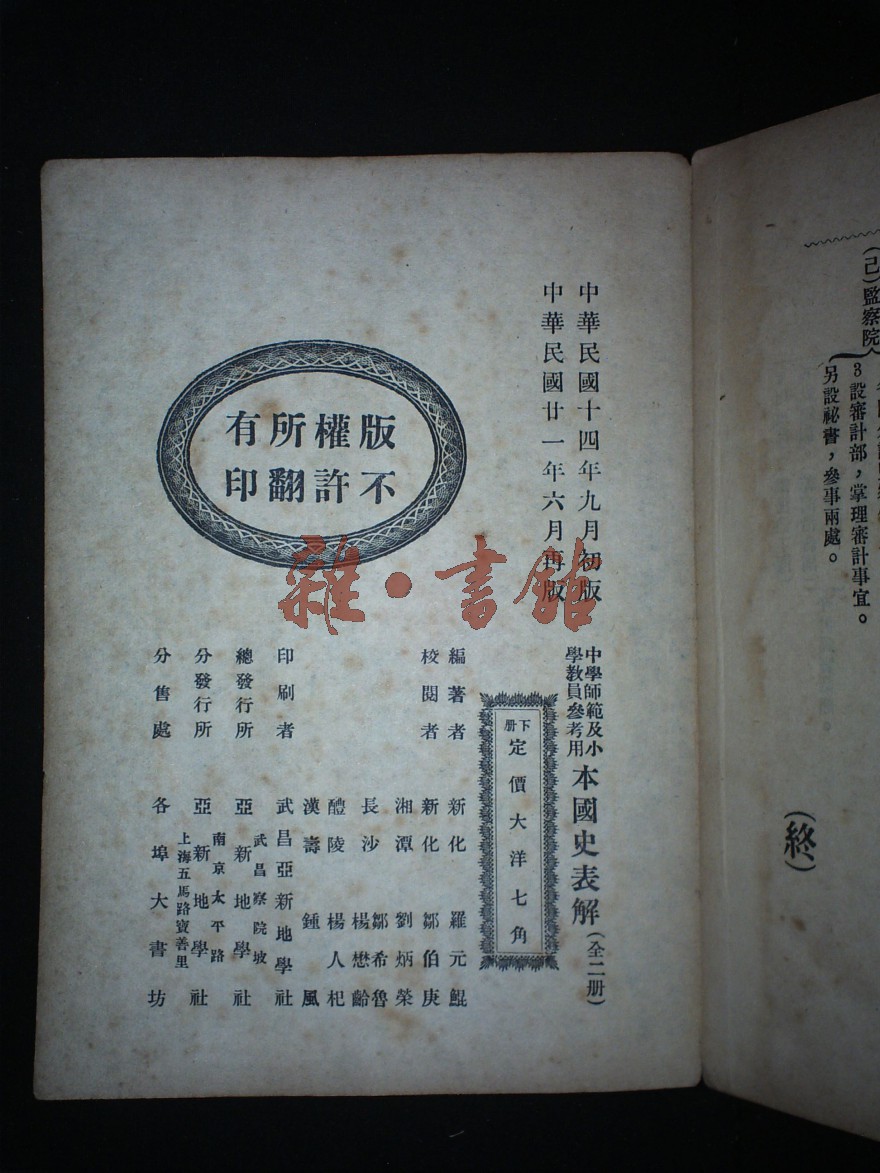 (己)監察院
3設審計部，掌理審計事宜。
另設祕書，參事兩處。
(終)
中華民國十四年九月初版
中華民國廿一年六月再版
版權所有
不許翻印
中學師範及小學教員參考用
本國史表解(全二册)
下册
定價大洋七角
編著者 新化 羅元鯤
校閱者 新化 鄒伯庚
湘潭 劉炳榮
長沙 鄒希魯
楊懋齡
醴陵 楊人杞
漢壽 鍾風
印刷者 武昌亞新地學社
總發行所 武昌察院坡
亞新地學社
分發行所 南京太平路
亞新地學社
上海五馬路寶善里
分售處 各埠大書坊
雜·書館